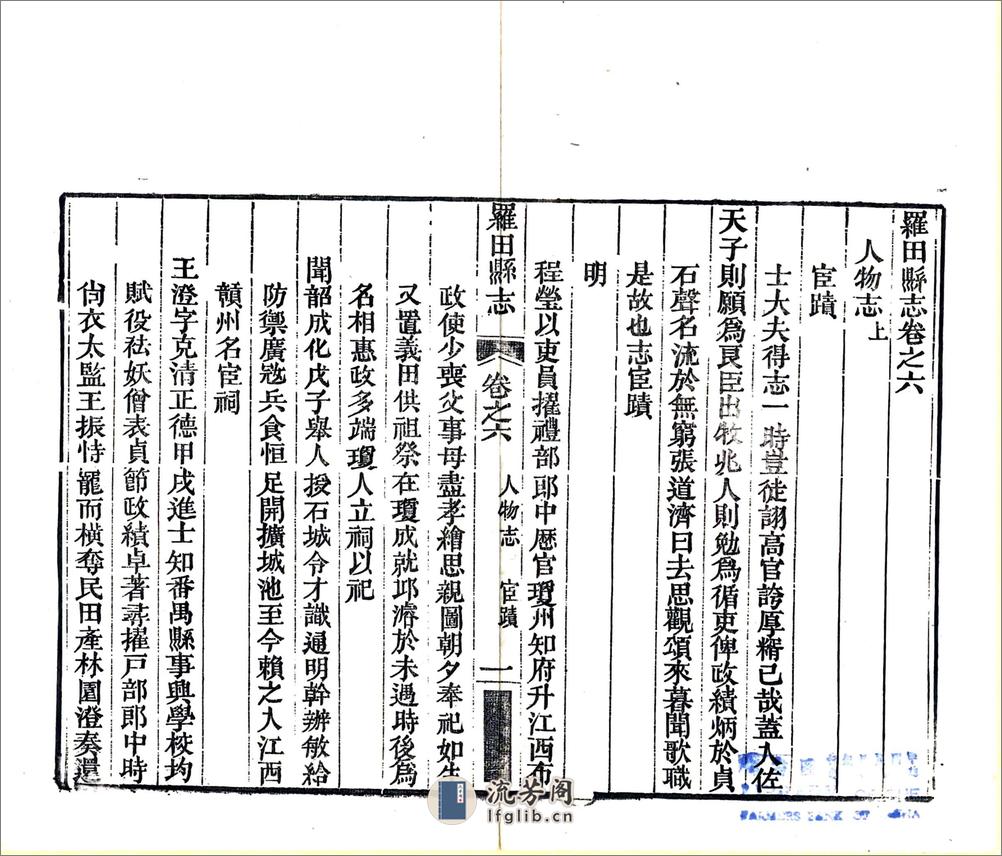 羅田縣志卷之六
人物志上
宦蹟
士大夫得志一時豈徒詡高官誇厚糈已哉蓋入佐
天子則願為良臣出牧兆人則勉為循吏俾政績炳於貞
石聲名流於無窮張道濟曰去思觀頌來暮聞歌職
是故也志宦蹟
明
程瑩以吏員擢禮部郎中歷官瓊州知府升江西布
羅田縣志
卷之六
人物志
宦蹟
一
政使少喪父事母盡孝繪思親圖朝夕奉祀如生
又置義田供祖祭在瓊成就邱濬於未遇時後為
名相惠政多端瓊人立祠以祀
聞韶成化戊子舉人授石城令才識通明幹辦敏給
防禦廣寇兵食恒足開擴城池至今賴之入江西
贛州名宦祠
王澄字克清正德甲戌進士知番禺縣事興學校均
賦役祛妖僧表貞節政績卓著尋擢戶部郎中時
尚衣太監王振恃寵而橫奪民田產林園澄奏還
流芳阁
lfglib.cn
FARMERS BANK OF CHINA